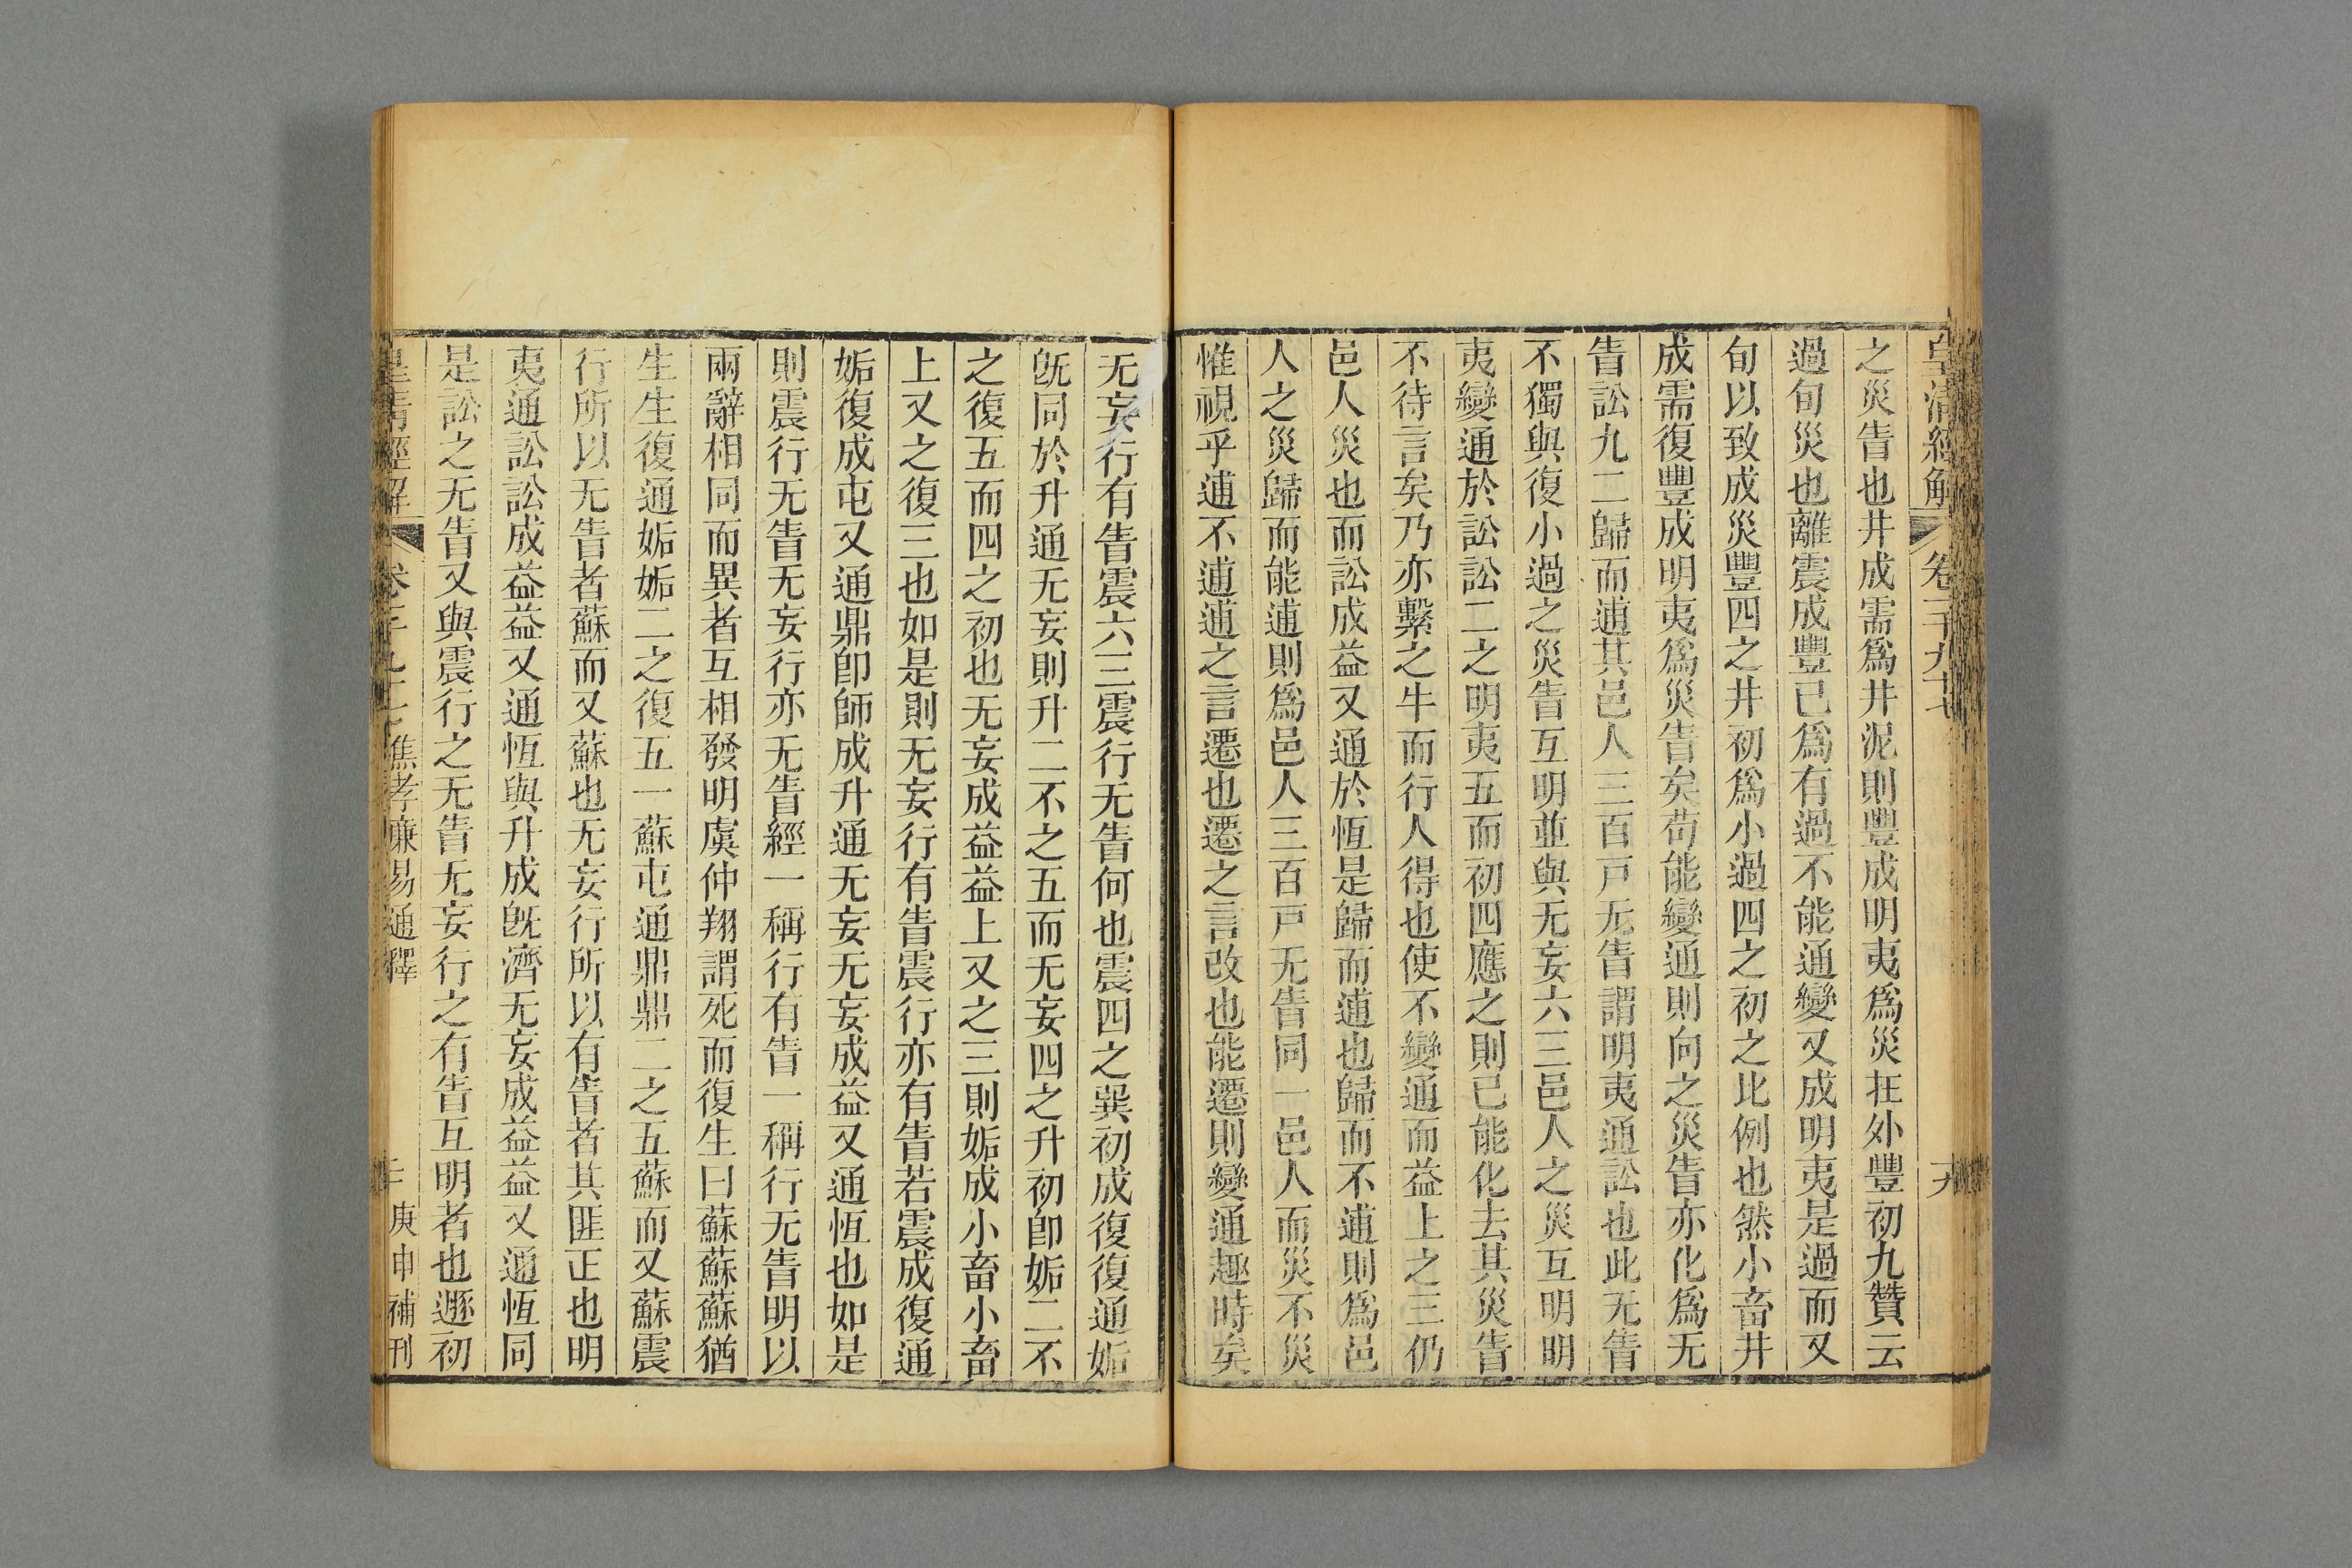 皇清經解 卷一千九十七 十九
之災眚也井成需爲井泥則豐成明夷爲災在外豐初九贊云
過旬災也離震成豐已爲有過不能通變又成明夷是過而又
旬以致成災豐四之井初爲小過四之初之比例也然小畜井
成需復豐成明夷爲災眚矣苟能變通則向之災眚亦化爲无
眚訟九二歸而逋其邑人三百戸无眚謂明夷通訟也此无眚
不獨與復小過之災眚互明並與无妄六三邑人之災互明明
夷變通於訟訟二之明夷五而初四應之則已能化去其災眚
不待言矣乃亦繫之牛而行人得也使不變通而益上之三仍
邑人災也而訟成益又通於恆是歸而逋也歸而不逋則爲邑
人之災歸而能逋則爲邑人三百戸无眚同一邑人而災不災
惟視乎逋不逋逋之言遷也遷之言改也能遷則變通趣時矣
无妄行有眚震六三震行无眚何也震四之巽初成復復通姤
旣同於升通无妄則升二不之五而无妄四之升初卽姤二不
之復五而四之初也无妄成益益上又之三則姤成小畜小畜
上又之復三也如是則无妄行有眚震行亦有眚若震成復通
姤復成屯又通鼎卽師成升通无妄无妄成益又通恆也如是
則震行无眚无妄行亦无眚經一稱行有眚一稱行无眚明以
兩辭相同而異者互相發明虞仲翔謂死而復生曰蘇蘇蘇猶
生生復通姤姤二之復五一蘇屯通鼎鼎二之五蘇而又蘇震
行所以无眚者蘇而又蘇也无妄行所以有眚者其匪正也明
夷通訟訟成益益又通恆與升成旣濟无妄成益益又通恆同
是訟之无眚又與震行之无眚无妄行之有眚互明者也遯初
皇清經解 卷一千九十七 焦孝廉易通釋 二十 庚申補刊